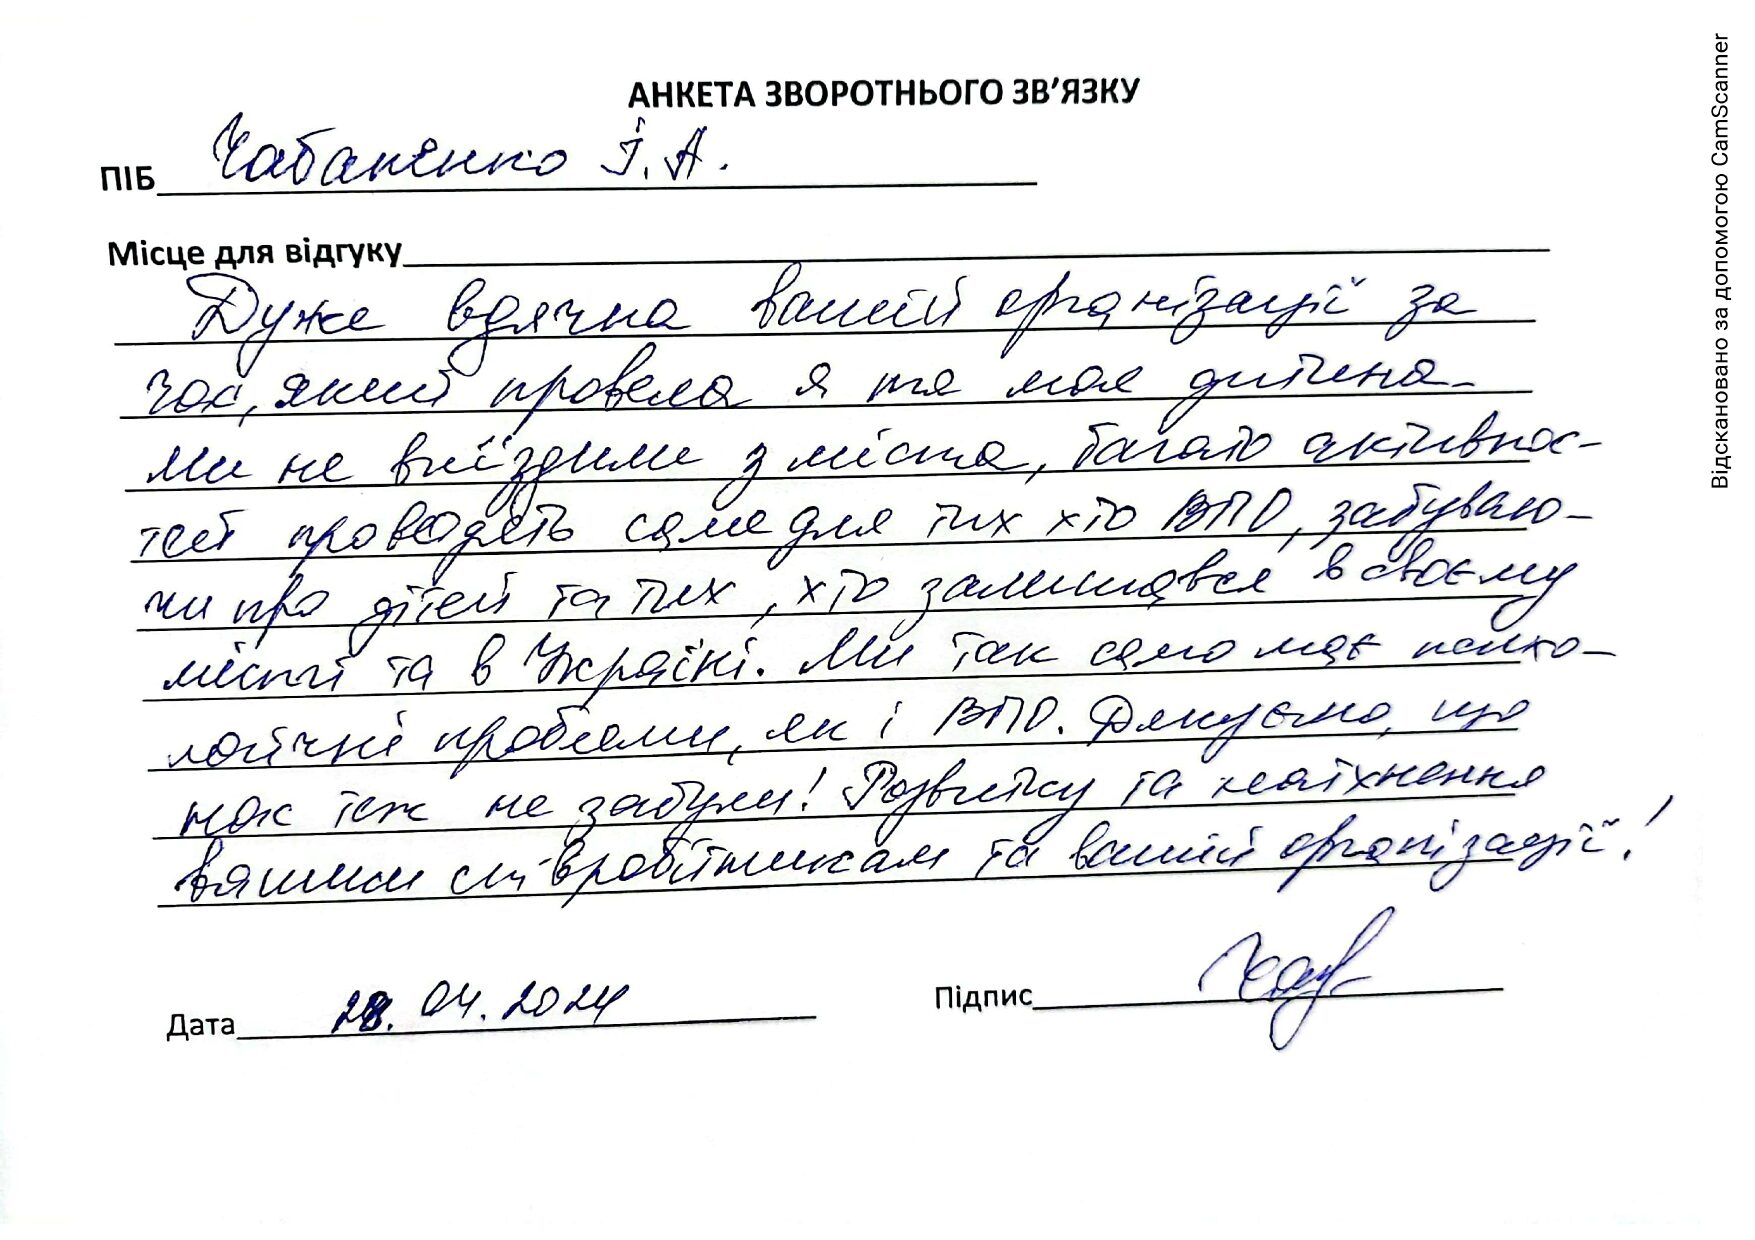 АНКЕТА ЗВОРОТНЬОГО ЗВ'ЯЗКУ
ПІБ Чабаненко І. А.
Місце для відгуку
Дуже вдячна вашій організації за
час, який провела я та моя дитина.
Ми не виїздили з міста, багато активнос-
тей проводять саме для тих хто ВПО, забуваю-
чи про дітей та тих, хто залишався в своєму
місті та в Україні. Ми так само має психо-
логічні проблеми, як і ВПО. Дякуємо, що
нас теж не забули! Розвитку та натхнення
вашим співробітникам та вашій організації!
Дата 28.04.2024
Підпис
Відскановано за допомогою CamScanner